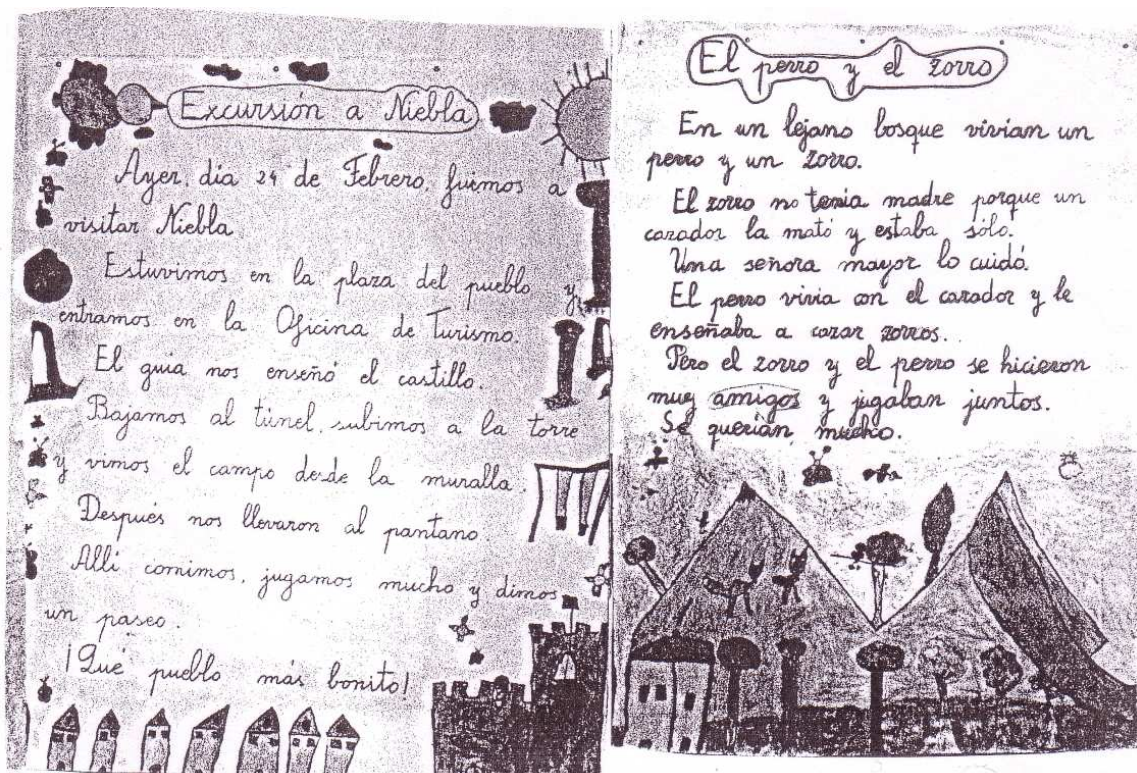 Excursión a Niebla
Ayer, día 24 de Febrero, fuimos a
visitar Niebla.
Estuvimos en la plaza del pueblo y
entramos en la Oficina de Turismo.
El guia nos enseñó el castillo.
Bajamos al túnel, subimos a la torre
y vimos el campo desde la muralla.
Después nos llevaron al pantano.
Alli comimos, jugamos mucho y dimos
un paseo.
¡Qué pueblo más bonito!
El perro y el zorro
En un lejano bosque vivian un
perro y un zorro.
El zorro no tenia madre porque un
cazador la mató y estaba sólo.
Una señora mayor lo cuidó.
El perro vivia con el cazador y le
enseñaba a cazar zorros.
Pero el zorro y el perro se hicieron
muy amigos y jugaban juntos.
Se querian mucho.